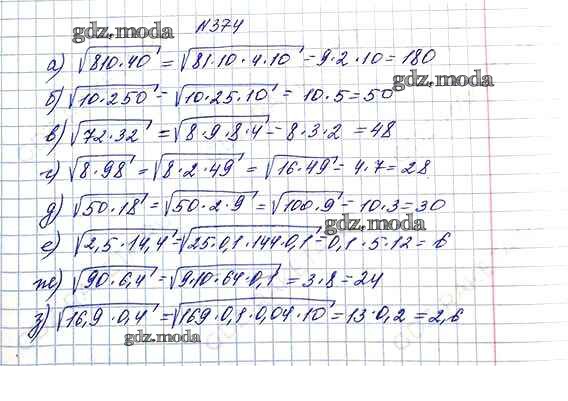 gdz.moda
№374
а) √810·40 = √81·10·4·10 = 9·2·10 = 180
gdz.moda
б) √10·250 = √10·25·10 = 10·5 = 50
в) √72·32 = √8·9·8·4 = 8·3·2 = 48
г) √8·98 = √8·2·49 = √16·49 = 4·7 = 28
д) √50·18 = √50·2·9 = √100·9 = 10·3 = 30
gdz.moda
е) √2,5·14,4 = √25·0,1·144·0,1 = 0,1·5·12 = 6
ж) √90·6,4 = √9·10·64·0,1 = 3·8 = 24
з) √16,9·0,4 = √169·0,1·0,04·10 = 13·0,2 = 2,6
gdz.moda